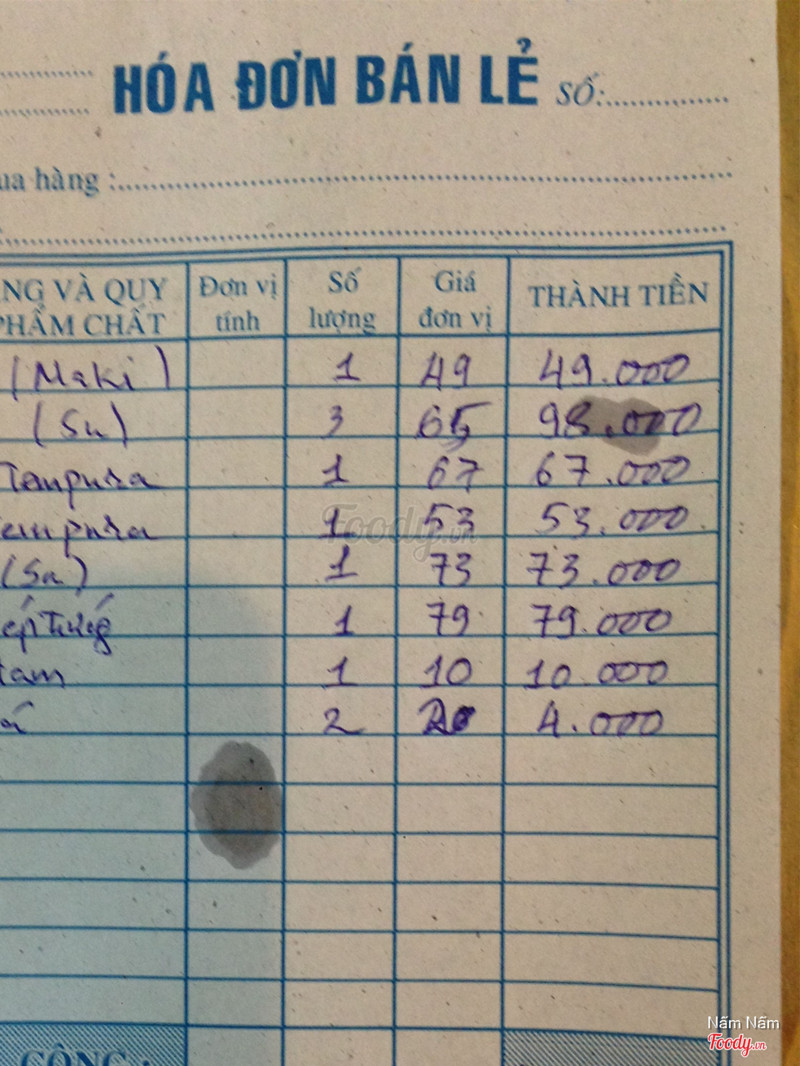 HÓA ĐƠN BÁN LẺ SỐ:
ua hàng :
NG VÀ QUY PHẨM CHẤT Đơn vị tính Số lượng Giá đơn vị THÀNH TIỀN
(Maki) 1 49 49.000
(Su) 3 65 98.000
Tempura 1 67 67.000
empura 1 53 53.000
(Su) 1 73 73.000
1 79 79.000
tam 1 10 10.000
á 2 4.000
CỘNG :
Foody.vn
Nấm Nấm
Foody.vn